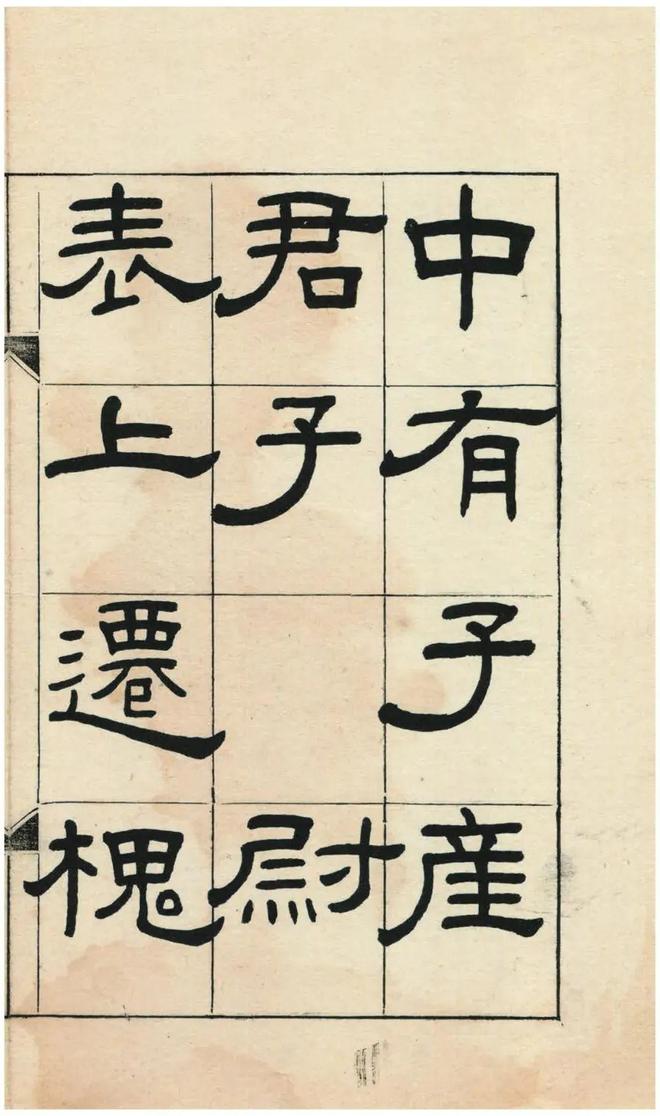 中有子産
君子　尉
表上遷槐